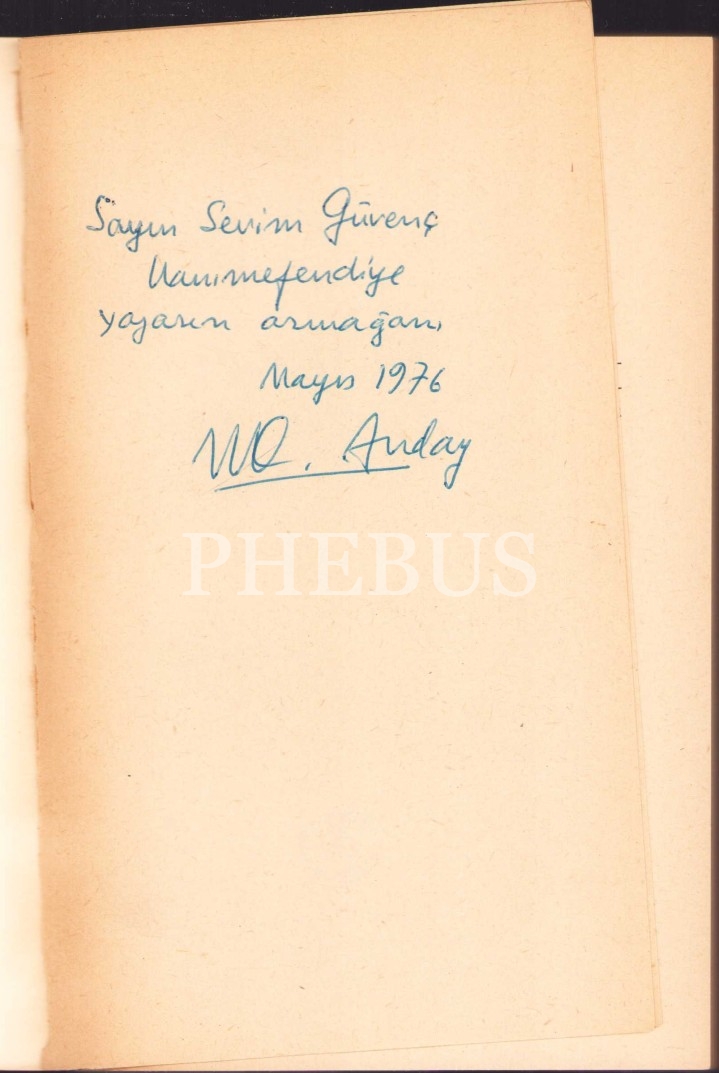 Sayın Sevim Güvenç
Hanımefendiye
yazarın armağanı
Mayıs 1976
MC. Anday
PHEBUS